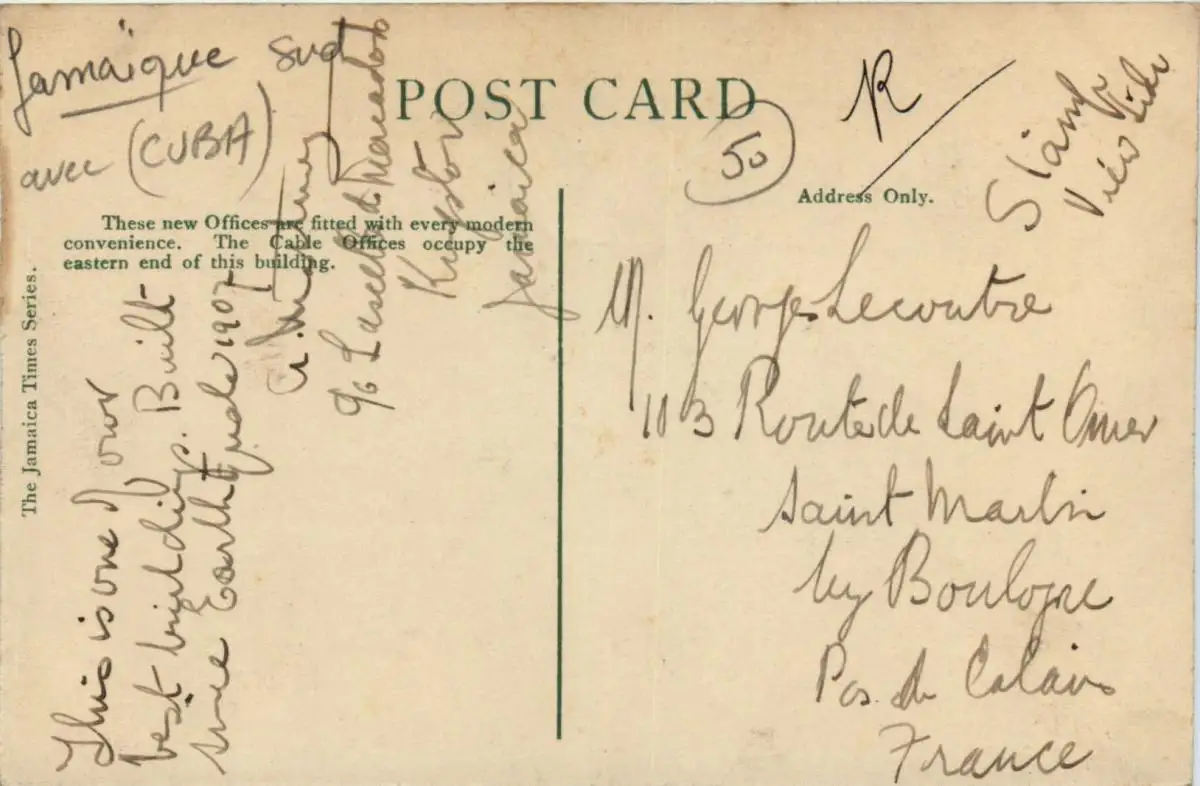 Jamaïque Sud
avec (CUBA)
POST CARD
50
R
Stamp
View Side
Address Only.
These new Offices are fitted with every modern
convenience. The Cable Offices occupy the
eastern end of this building.
The Jamaica Times Series.
This is one of our
best buildings. Built
since Earthquake 1907
c/o Lascelles deMercado
Kingston
Jamaica
M. Georges Lecoutre
103 Route de Saint Omer
Saint Martin
by Boulogne
Pas de Calais
France